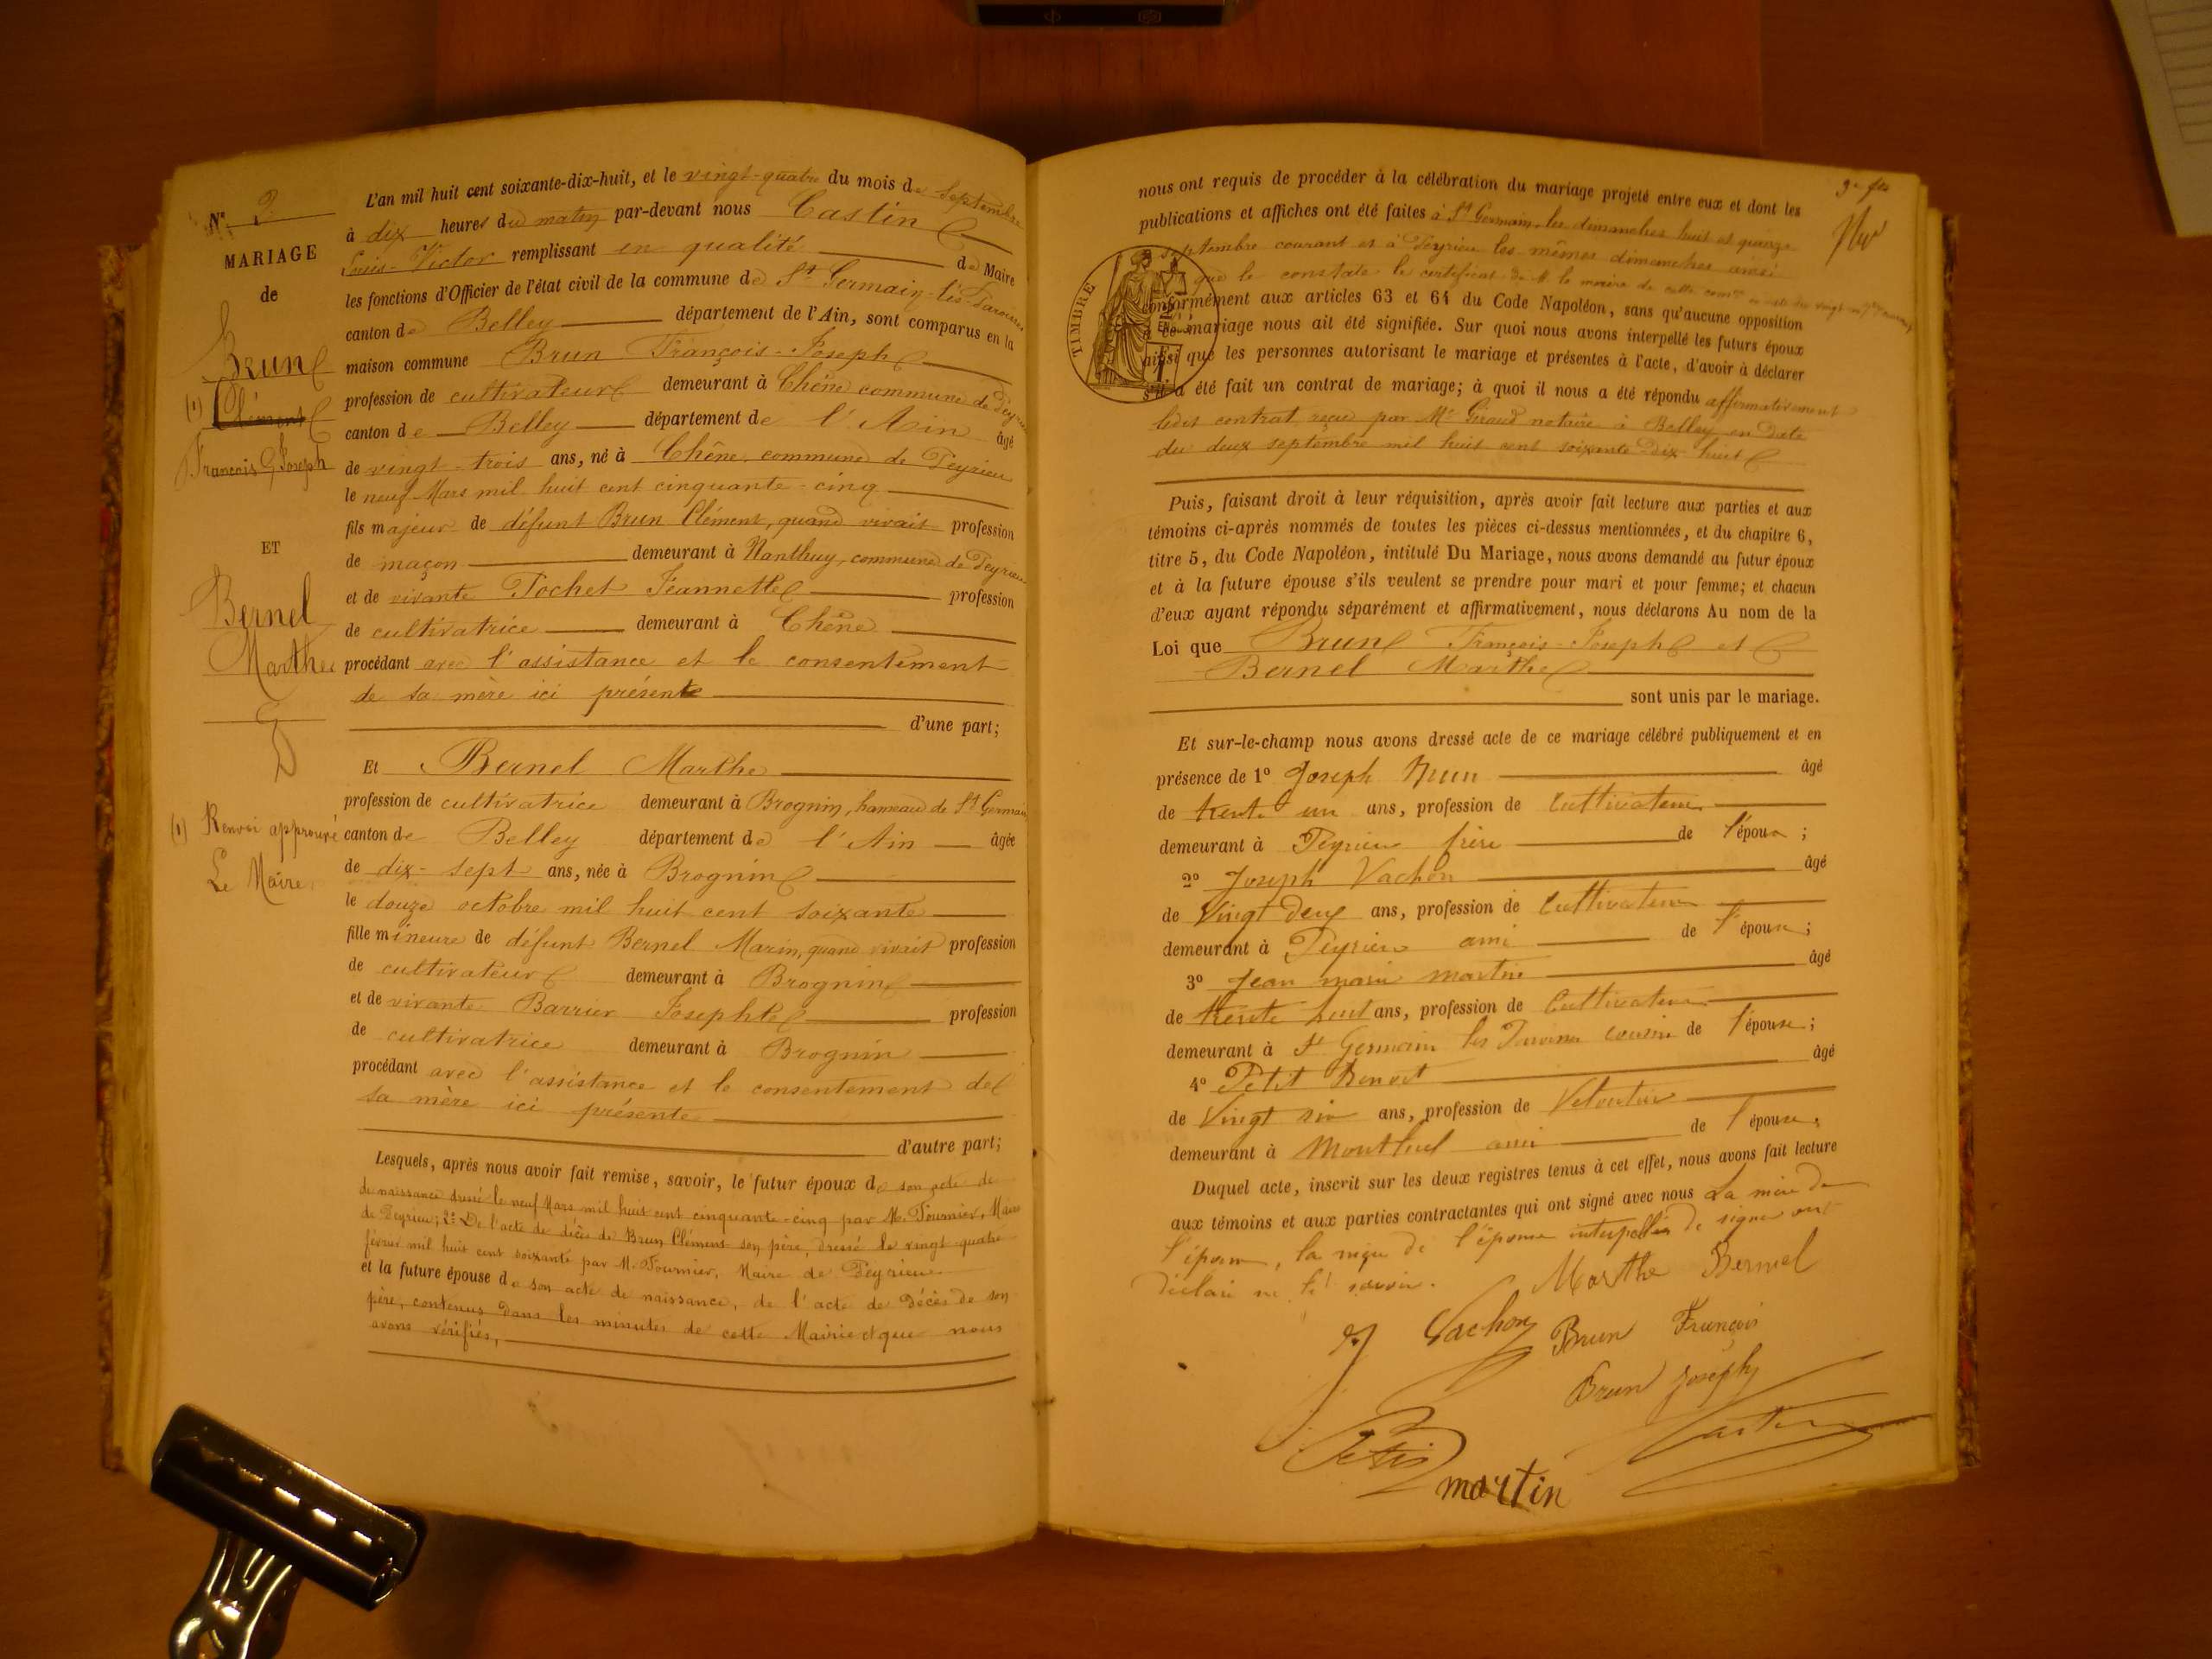 N° 3
MARIAGE
de
Brun
(1) Clément
François Joseph
ET
Bernel
Marthe
(1) Renvoi approuvé
Le Maire
L'an mil huit cent soixante-dix-huit, et le vingt-quatre du mois de septembre
à dix heures du matin par-devant nous Castin
Louis-Victor remplissant en qualité de Maire
les fonctions d'Officier de l'état civil de la commune de St Germain-les-Paroisses
canton de Belley département de l'Ain, sont comparus en la
maison commune Brun François-Joseph
profession de cultivateur demeurant à Chêne commune de Peyrieu
canton de Belley département de l'Ain âgé
de vingt-trois ans, né à Chêne commune de Peyrieu
le neuf Mars mil huit cent cinquante-cinq
fils majeur de défunt Brun Clément, quand vivait profession
de maçon demeurant à Nanthuy, commune de Peyrieu
et de vivante Pochet Jeannette profession
de cultivatrice demeurant à Chêne
procédant avec l'assistance et le consentement
de sa mère ici présente
d'une part;
Et Bernel Marthe
profession de cultivatrice demeurant à Brognin, hameau de St Germain
canton de Belley département de l'Ain âgée
de dix-sept ans, née à Brognin
le douze octobre mil huit cent soixante
fille mineure de défunt Bernel Marin, quand vivait profession
de cultivateur demeurant à Brognin
et de vivante Barrier Josephte profession
de cultivatrice demeurant à Brognin
procédant avec l'assistance et le consentement de
sa mère ici présente
d'autre part;
Lesquels, après nous avoir fait remise, savoir, le futur époux de son acte de
de naissance dressé le neuf Mars mil huit cent cinquante-cinq par M. Fournier, Maire
de Peyrieu; 2° De l'acte de décès de Brun Clément son père, dressé le vingt quatre
février mil huit cent soixante par M. Fournier, Maire de Peyrieu.
et la future épouse de son acte de naissance, de l'acte de décès de son
père, contenus dans les minutes de cette Mairie et que nous
avons vérifiés,
nous ont requis de procéder à la célébration du mariage projeté entre eux et dont les
publications et affiches ont été faites à St Germain les dimanches huit et quinze
septembre courant et à Peyrieu les mêmes dimanches ainsi
que le constate le certificat de M. le maire de cette comne
conformément aux articles 63 et 64 du Code Napoléon, sans qu'aucune opposition
à ce mariage nous ait été signifiée. Sur quoi nous avons interpellé les futurs époux
ainsi que les personnes autorisant le mariage et présentes à l'acte, d'avoir à déclarer
s'il a été fait un contrat de mariage; à quoi il nous a été répondu affirmativement
ledit contrat reçu par Me Giraud notaire à Belley en date
du deux septembre mil huit cent soixante dix-huit
TIMBRE
Puis, faisant droit à leur réquisition, après avoir fait lecture aux parties et aux
témoins ci-après nommés de toutes les pièces ci-dessus mentionnées, et du chapitre 6,
titre 5, du Code Napoléon, intitulé Du Mariage, nous avons demandé au futur époux
et à la future épouse s'ils veulent se prendre pour mari et pour femme; et chacun
d'eux ayant répondu séparément et affirmativement, nous déclarons Au nom de la
Loi que Brun François-Joseph et
Bernel Marthe
sont unis par le mariage.
Et sur-le-champ nous avons dressé acte de ce mariage célébré publiquement et en
présence de 1° Joseph Brun âgé
de trente un ans, profession de Cultivateur
demeurant à Peyrieu frère de l'époux;
2° Joseph Vachon âgé
de Vingt deux ans, profession de Cultivateur
demeurant à Peyrieu ami de l'épouse;
3° Jean marie martin âgé
de trente huit ans, profession de Cultivateur
demeurant à St Germain les Paroisses cousin de l'épouse;
4° Petit Benoit âgé
de Vingt six ans, profession de
demeurant à Montluel ami de l'épouse,
Duquel acte, inscrit sur les deux registres tenus à cet effet, nous avons fait lecture
aux témoins et aux parties contractantes qui ont signé avec nous La mère de
l'époux, la mère de l'épouse interpellés de signer ont
déclaré ne le savoir.
Marthe Bernel
J Vachon
Brun François
Brun Joseph
Petit
Castin
martin